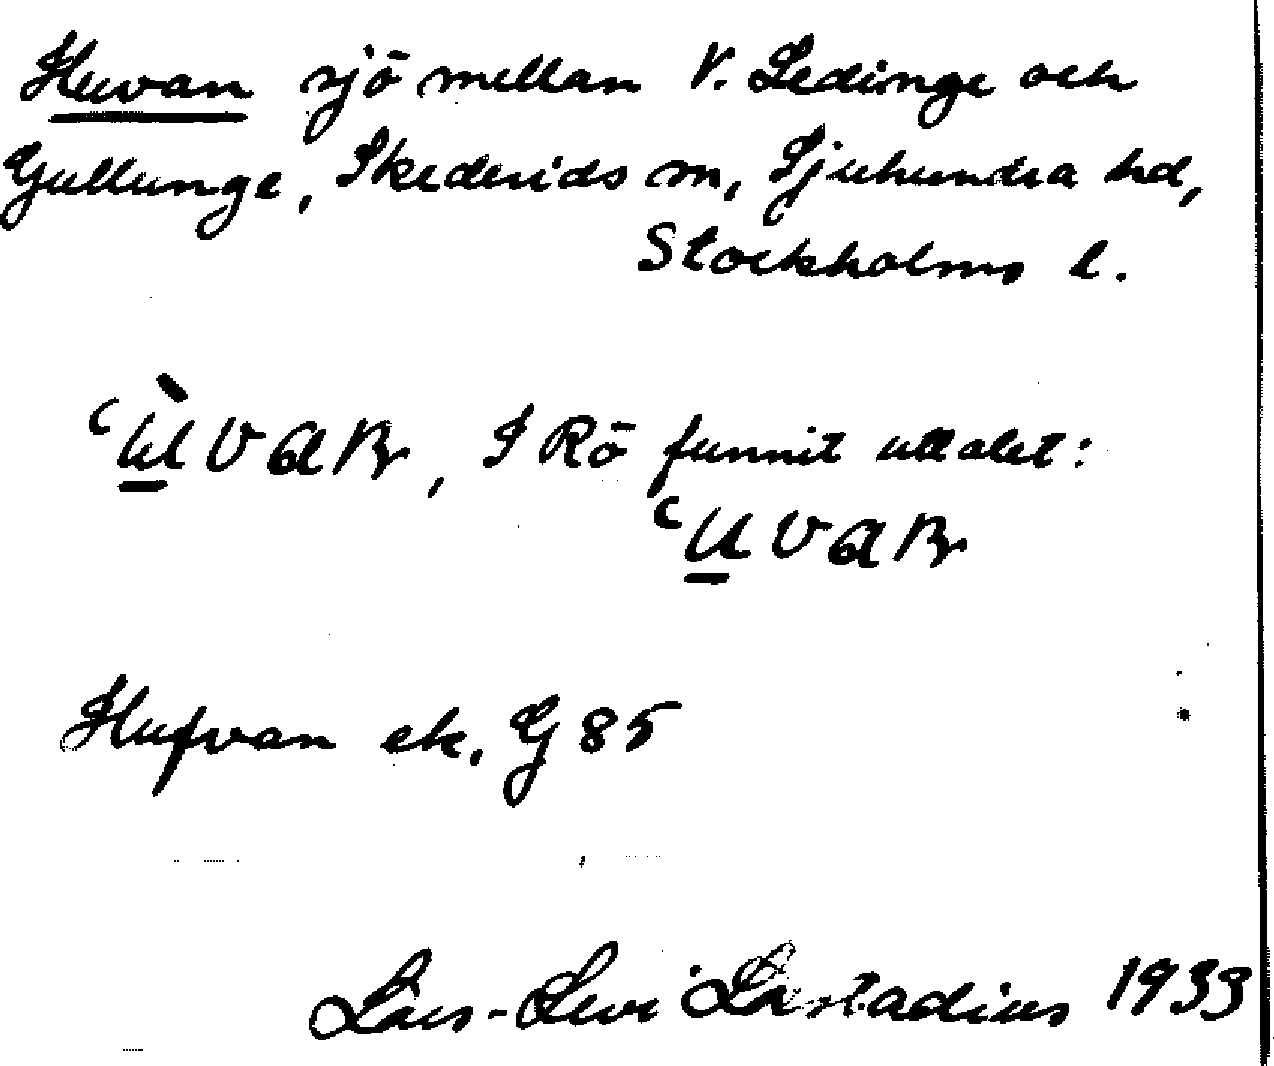 Huvan sjö mellan V. Ledinge och
Gullunge, Skederids sn, Sjuhundra hd,
Stockholms l.
I Rö funnit uttalet:
Hufvan ek. G 85
Lars-Levi Læstadius 1933